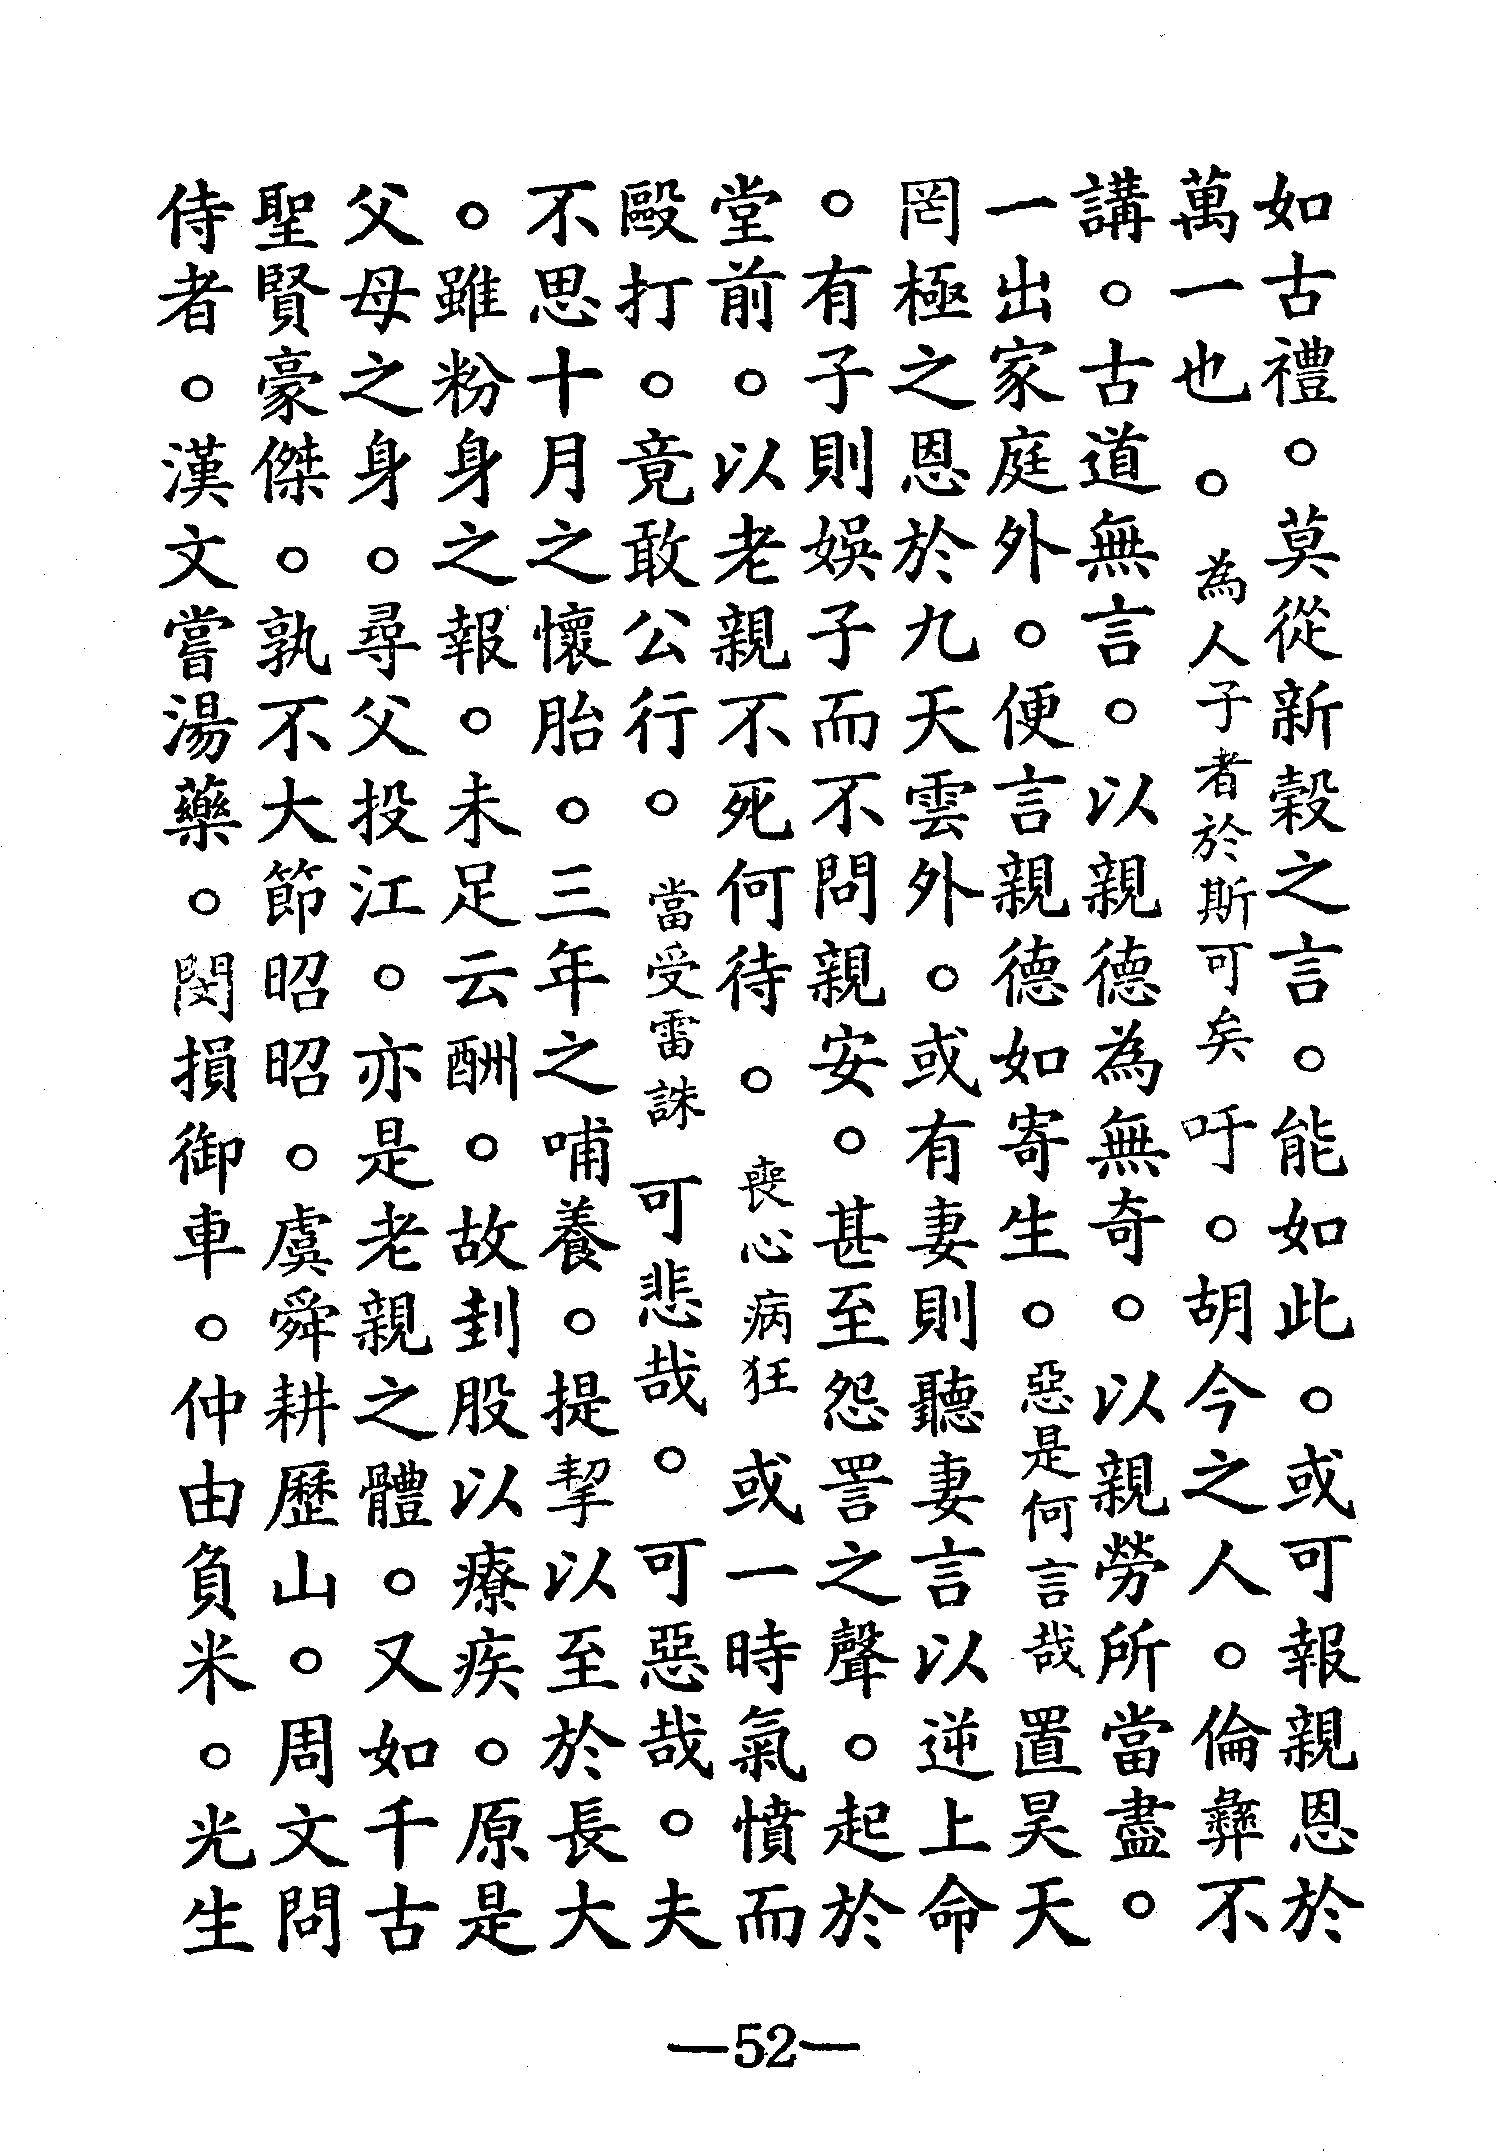 如古禮。莫從新穀之言。能如此。或可報親恩於
萬一也。為人子者於斯可矣吁。胡今之人。倫彝不
講。古道無言。以親德為無奇。以親勞所當盡。
一出家庭外。便言親德如寄生。惡是何言哉置昊天
罔極之恩於九天雲外。或有妻則聽妻言以逆上命
。有子則娛子而不問親安。甚至怨詈之聲。起於
堂前。以老親不死何待。喪心病狂或一時氣憤而
毆打。竟敢公行。當受雷誅可悲哉。可惡哉。夫
不思十月之懷胎。三年之哺養。提挈以至於長大
。雖粉身之報。未足云酬。故刲股以療疾。原是
父母之身。尋父投江。亦是老親之體。又如千古
聖賢豪傑。孰不大節昭昭。虞舜耕歷山。周文問
侍者。漢文嘗湯藥。閔損御車。仲由負米。光生
—52—